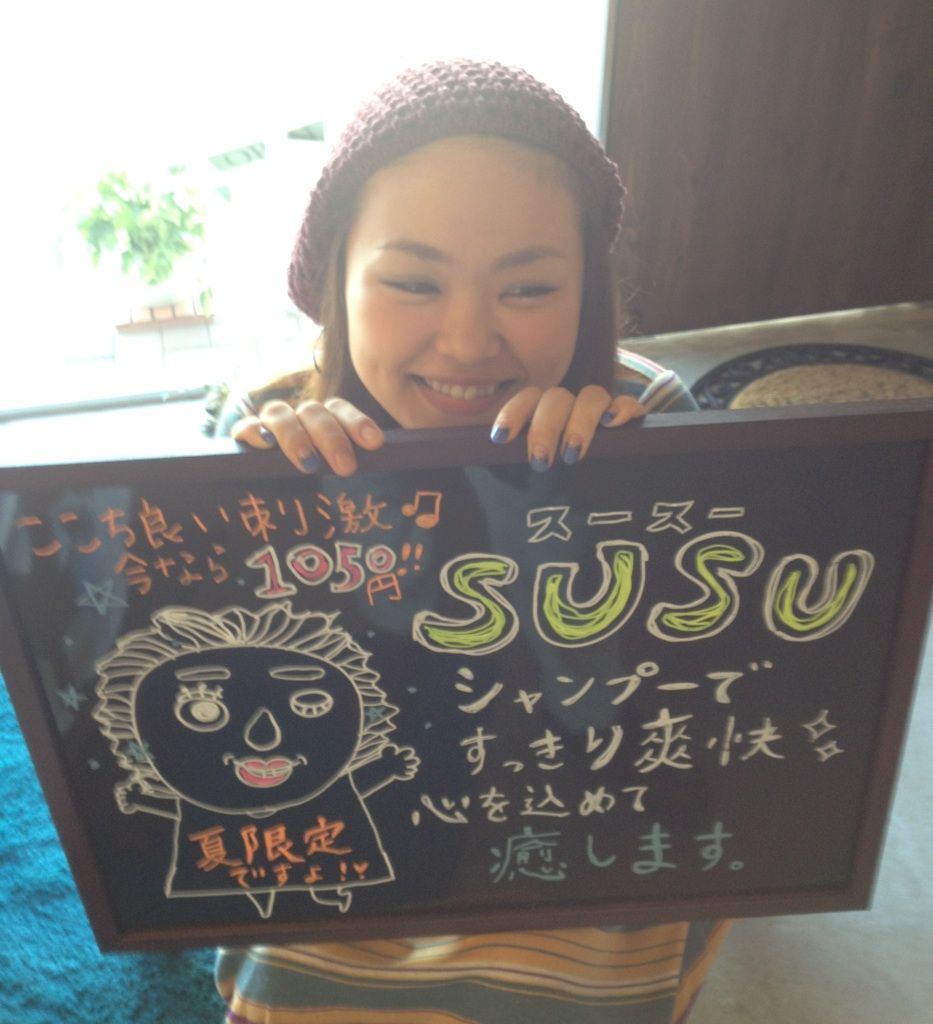 ここち良い刺激♫
今なら、1050円!!
スースー
SUSU
シャンプーで
すっきり爽快
心を込めて
癒します。
夏限定
ですよ!♥